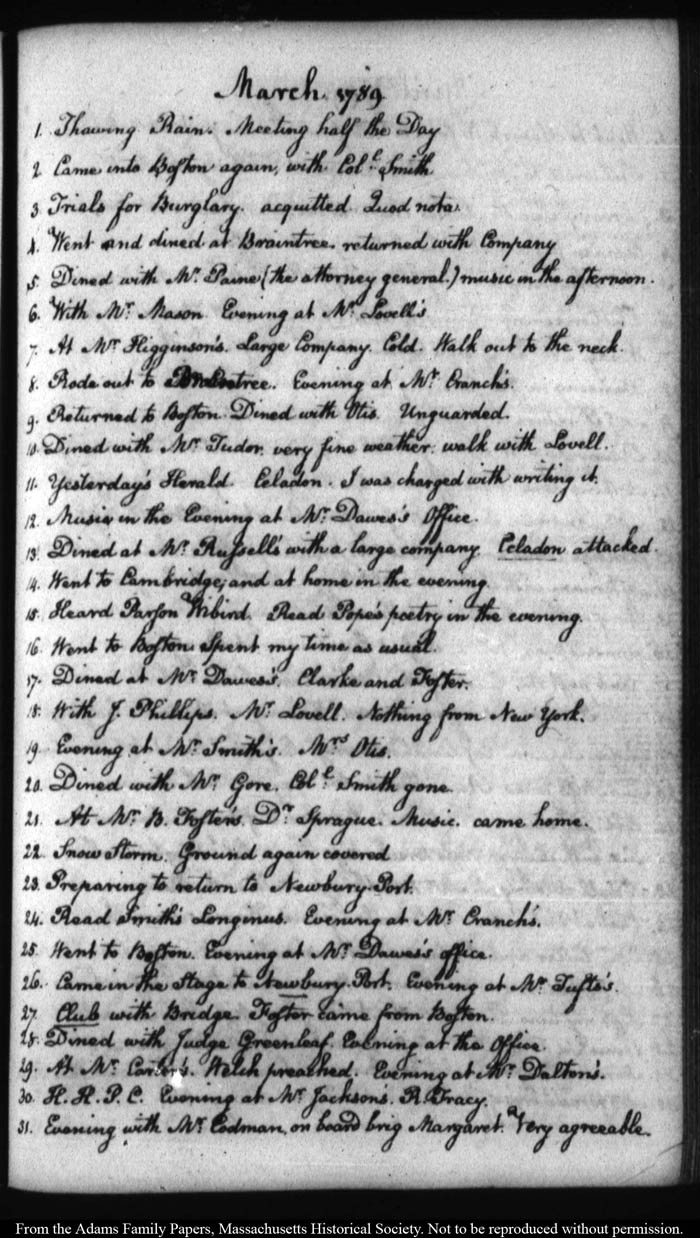 March. 1789
1. Thawing Rain. Meeting half the Day
2. Came into Boston again, with Colᶫ Smith
3. Trials for Burglary. acquitted. Quod nota.
4. Went and dined at Braintree. returned with Company
5. Dined with Mʳ Paine (the attorney general.) music in the afternoon.
6. With Mʳ Mason. Evening at Mʳ Lovell's
7. At Mʳ Higginson's. Large Company. Cold. Walk out to the neck.
8. Rode out to Braintree. Evening at Mʳ Cranch's.
9. Returned to Boston. Dined with Otis. Unguarded.
10. Dined with Mʳ Tudor. very fine weather. walk with Lovell.
11. Yesterday's Herald. Celadon. I was charged with writing it.
12. Music in the Evening at Mʳ Dawes's Office.
13. Dined at Mʳ Russell's with a large company. Celadon attacked.
14. Went to Cambridge; and at home in the evening.
15. Heard Parson Wibird. Read Pope's poetry in the evening.
16. Went to Boston. Spent my time as usual.
17. Dined at Mʳ Dawes's. Clarke and Foster.
18. With J. Phillips. Mʳ Lovell. Nothing from New York.
19. Evening at Mʳ Smith's. Mʳˢ Otis.
20. Dined with Mʳ Gore. Colᶫ Smith gone.
21. At Mʳ B. Foster's. Dʳ Sprague. Music. came home.
22. Snow Storm. Ground again covered
23. Preparing to return to Newbury-Port.
24. Read Smith's Longinus. Evening at Mʳ Cranch's.
25. Went to Boston. Evening at Mʳ Dawes's office.
26. Came in the Stage to Newbury-Port. Evening at Mʳ Tufts's.
27. Club with Bridge. Foster came from Boston.
28. Dined with Judge Greenleaf. Evening at the Office.
29. At Mʳ Carter's. Welch preached. Evening at Mʳ Dalton's.
30. H. R. P. C. Evening at Mʳ Jackson's. R. Tracy.
31. Evening with Mʳ Codman, on board brig Margaret. Very agreeable.
From the Adams Family Papers, Massachusetts Historical Society. Not to be reproduced without permission.